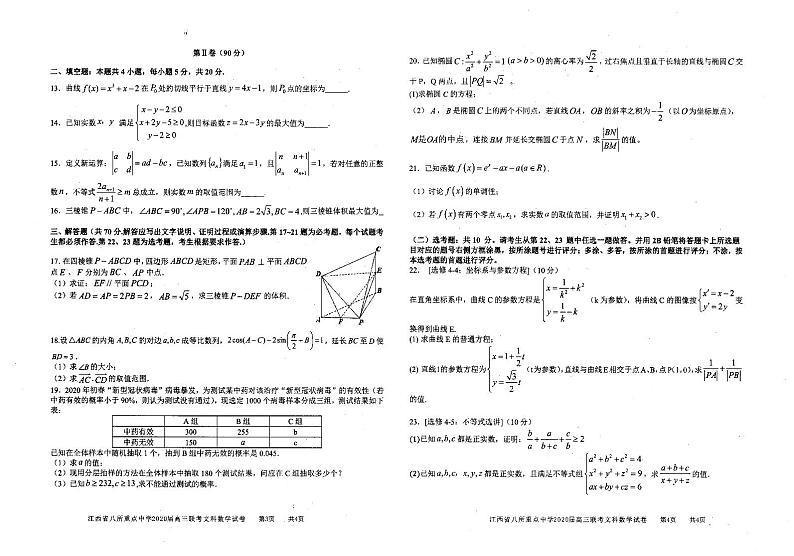 第Ⅱ卷(90分)
二、填空题：本题共4小题，每小题5分，共20分.
13. 曲线 f(x)=x³+x−2 在 P₀ 处的切线平行于直线 y=4x−1，则 P₀ 点的坐标为______.
14. 已知实数 x，y 满足 { x−y−2≤0, x+2y−5≥0, y−2≤0 则目标函数 z=2x−3y 的最大值为______.
15. 定义新运算：|a b; c d|=ad−bc，已知数列{aₙ}满足 a₁=1，且 |n n+1; aₙ aₙ₊₁|=1，若对任意的正整
数n，不等式 2aₙ₊₁/(n+1) ≥ m 总成立，则实数m的取值范围为______.
16. 三棱锥 P−ABC 中，∠ABC=90°,∠APB=120°,AB=2√3,BC=4,则三棱锥体积最大值为_
三、解答题（共70分,解答应写出文字说明、证明过程或演算步骤,第17~21题为必考题，每个试题考
生都必须作答.第22、23题为选考题，考生根据要求作答.）
17. 在四棱锥 P−ABCD 中,四边形 ABCD 是矩形,平面 PAB⊥平面 ABCD
点E、F分别为BC、AP中点.
(1) 求证：EF//平面PCD；
(2) 若 AD=AP=2PB=2，AB=√5，求三棱锥 P−DEF 的体积.
C
D
E
B
A
F
P
18.设△ABC的内角A,B,C的对边a,b,c成等比数列, 2cos(A−C)−2sin(π/2−B)=1, 延长BC至D使
BD=3.
(1) 求∠B的大小;
(2) 求 AC·CD 的取值范围.
19. 2020年初春“新型冠状病毒”病毒暴发，为测试某中药对该治疗“新型冠状病毒”的有效性（若
中药有效的概率小于90%，则认为测试没有通过），现选定1000个病毒样本分成三组，测试结果如下
表：
A组 B组 C组
中药有效 300 255 b
中药无效 150 a c
已知在全体样本中随机抽取1个，抽到B组中药无效的概率是0.045.
(1) 求a的值;
(2) 现用分层抽样的方法在全体样本中抽取180个测试结果，问应在C组抽取多少个？
(3) 已知b≥232,c≥13,求不能通过测试的概率.
江西省八所重点中学2020届高三联考文科数学试卷 第3页 共4页
20. 已知椭圆 C: x²/a²+y²/b²=1(a>b>0) 的离心率为 √2/2，过右焦点且垂直于长轴的直线与椭圆C交
于P，Q两点，且|PQ|=√2 。
(1)求椭圆C的方程;
(2) A，B是椭圆C上的两个不同点，若直线OA，OB的斜率之积为 −1/2（以O为坐标原点），
M是OA的中点，连接BM并延长交椭圆C于点N，求 |BN|/|BM| 的值。
21. 已知函数 f(x)=eˣ−ax−a(a∈R).
(1) 讨论f(x)的单调性;
(2) 若f(x)有两个零点x₁,x₂，求实数a的取值范围，并证明x₁+x₂>0.
（二）选考题：共10分。请考生从第22、23题中任选一题做答。并用2B铅笔将答题卡上所选题
目对应的题号右侧方框涂黑，按所涂题号进行评分；多涂、多答，按所涂的首题进行评分；不涂，按
本选考题的首题进行评分。
22. [选修4-4：坐标系与参数方程](10分)
在直角坐标系中，曲线C的参数方程是 { x=1/k²+k², y=1/k−k （k为参数），将曲线C的图像按 { x'=x−2, y'=2y 变
换得到曲线E.
(1) 求曲线E的普通方程;
(2) 直线l的参数方程为 { x=1+1/2t, y=√3/2t （t为参数),直线与曲线E相交于点A、B,点P(1,0),求 1/|PA|+1/|PB|
的值.
23. [选修4-5：不等式选讲](10分)
(1)已知a,b,c都是正实数，证明: b/a+a/(b+c)+c/b≥2
(2)已知a,b,c，x,y,z都是正实数，且满足不等式组 { a²+b²+c²=4, x²+y²+z²=9, ax+by+cz=6 ，求 (a+b+c)/(x+y+z) 的值.
江西省八所重点中学2020届高三联考文科数学试卷 第4页 共4页